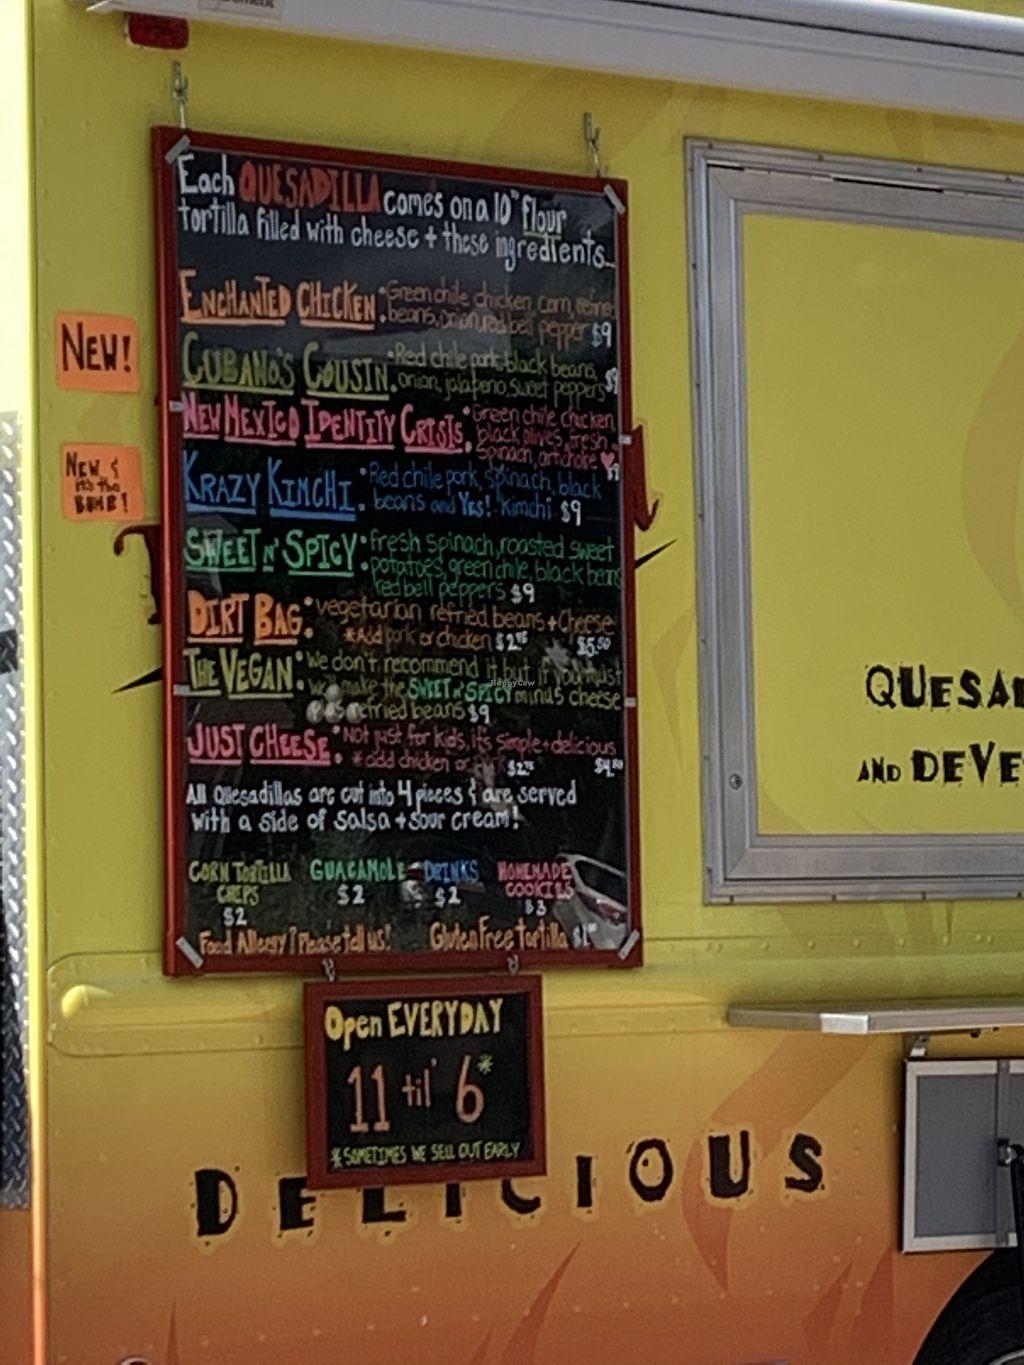 Each QUESADILLA comes on a 10" flour
tortilla filled with cheese + these ingredients...
ENCHANTED CHICKEN: Green chile chicken, corn, refried
beans, onion, red bell pepper $9
CUBANO'S COUSIN: Red chile pork, black beans,
onion, jalapeno, sweet peppers $9
NEW MEXICO IDENTITY CRISIS: Green chile chicken,
black olives, fresh
spinach, artichoke
KRAZY KIMCHI: Red chile pork, spinach, black
beans and YES! kimchi $9
SWEET N' SPICY: fresh spinach, roasted sweet
potatoes, green chile, black beans
red bell peppers $9
DIRT BAG: vegetarian refried beans + Cheese
*Add pork or chicken $2.75 $5.50
THE VEGAN: We don't recommend it but if you must
we'll make the SWEET N' SPICY minus cheese
plus refried beans $9
JUST CHEESE: Not just for kids, it's simple + delicious
*add chicken or pork $2.75
All Quesadillas are cut into 4 pieces & are served
with a side of salsa + sour cream!
CORN TORTILLA GUACAMOLE DRINKS HOMEMADE
CHIPS $2 $2 COOKIES
$2 $3
Food Allergy? Please tell us! Gluten Free tortilla
NEW!
NEW &
it's the
BOMB!
Open EVERYDAY
11 til' 6*
*SOMETIMES WE SELL OUT EARLY
DELICIOUS
QUESA
AND DEVE
HappyCow